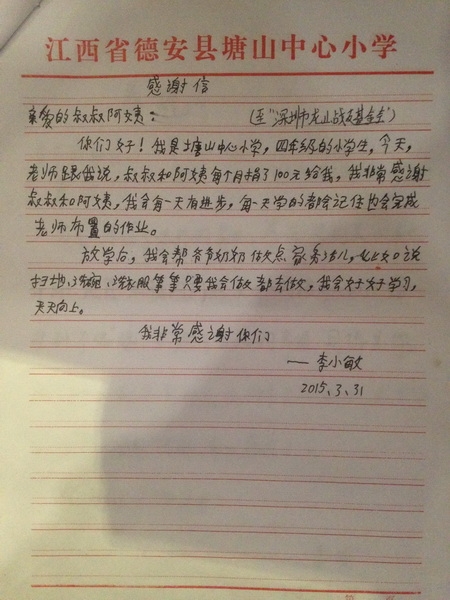 江西省德安县塘山中心小学
感谢信
亲爱的叔叔阿姨：（至“深圳市龙山战友基金会”）
你们好！我是塘山中心小学，四年级的小学生，今天，
老师跟我说，叔叔和阿姨每个月捐了100元给我，我非常感谢
叔叔和阿姨，我会每一天有进步，每一天学的都会记住也会完成
老师布置的作业。
放学后，我会帮爷爷奶奶做点家务活儿，比如说
扫地、洗碗、洗衣服等等只要我会做都去做，我会好好学习，
天天向上。
我非常感谢你们
——李小敏
2015、3、31